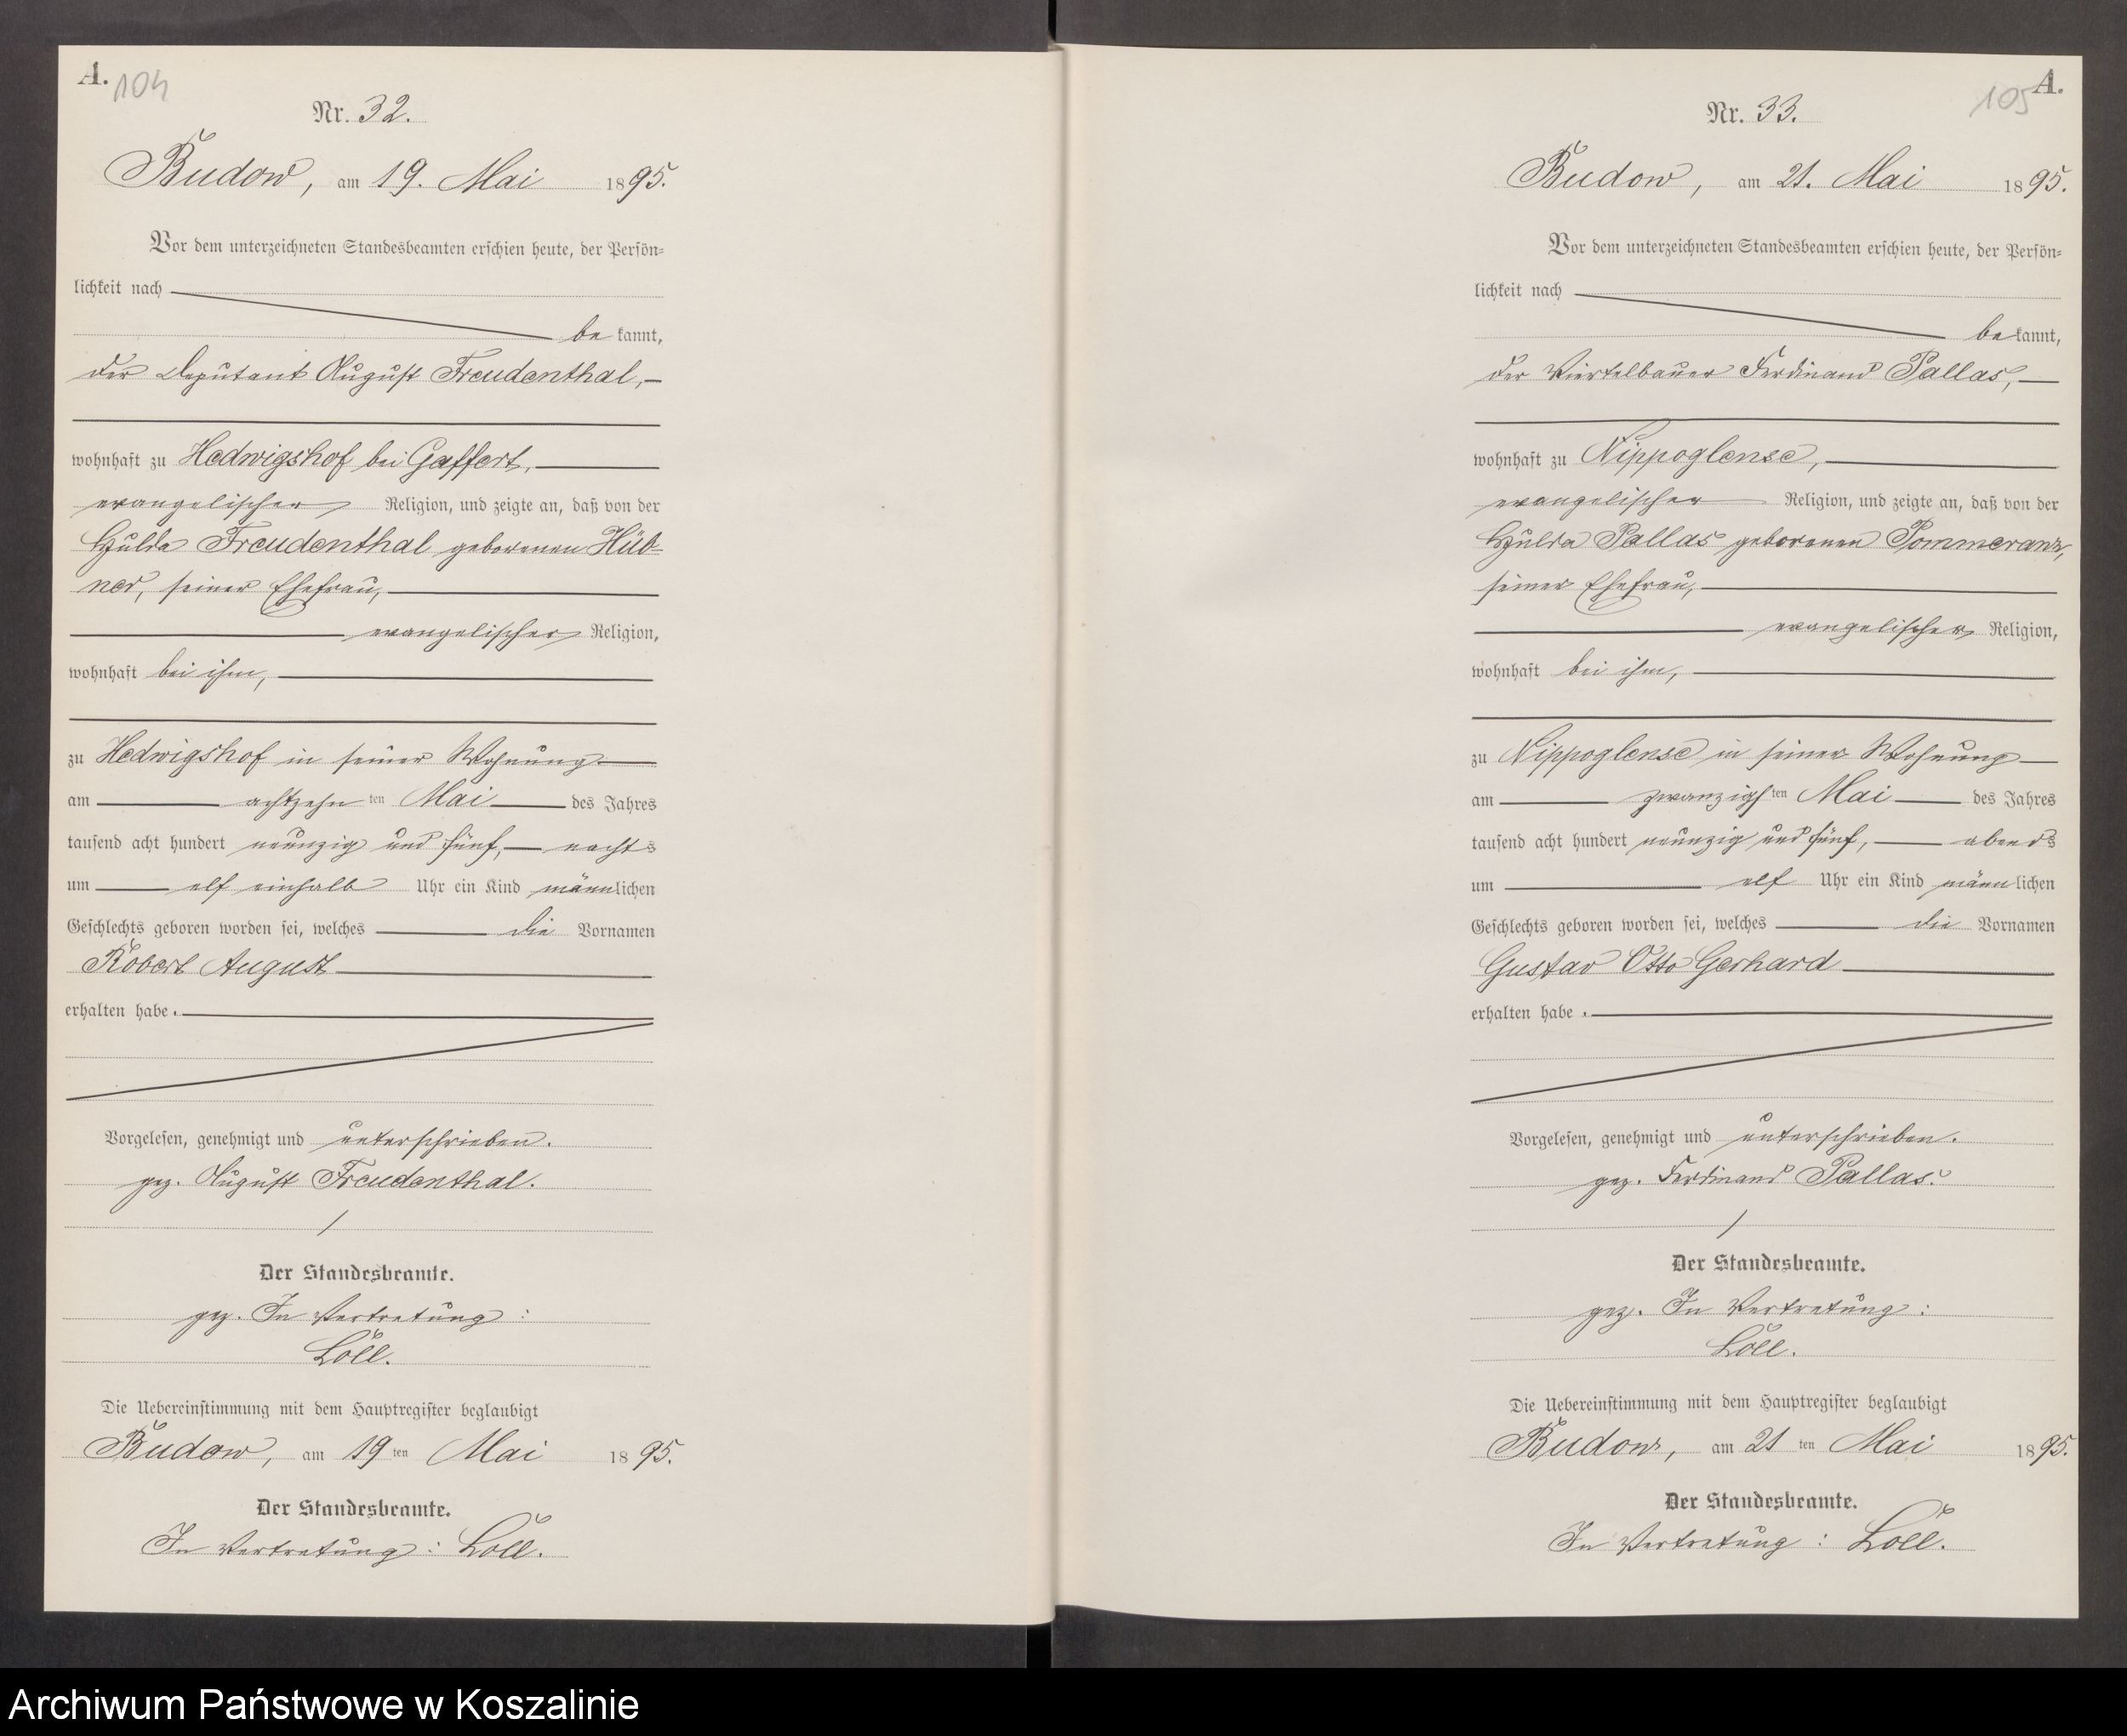 A.
104
Nr. 32.
Budow, am 19. Mai 1895.
Vor dem unterzeichneten Standesbeamten erschien heute, der Persön=
lichkeit nach
be kannt,
der Deputant August Freudenthal,
wohnhaft zu Hedwigshof bei Gaffert,
evangelischer Religion, und zeigte an, daß von der
Hulda Freudenthal geborenen Hüb=
ner, seiner Ehefrau,
evangelischer Religion,
wohnhaft bei ihm,
zu Hedwigshof in seiner Wohnung
am achtzehn ten Mai des Jahres
tausend acht hundert neunzig und fünf, nachts
um elf einhalb Uhr ein Kind männlichen
Geschlechts geboren worden sei, welches die Vornamen
Robert August
erhalten habe.
Vorgelesen, genehmigt und unterschrieben.
gez. August Freudenthal.
Der Standesbeamte.
gez. In Vertretung:
Löll.
Die Uebereinstimmung mit dem Hauptregister beglaubigt
Budow, am 19 ten Mai 1895.
Der Standesbeamte.
In Vertretung: Löll.
A.
105
Nr. 33.
Budow, am 21. Mai 1895.
Vor dem unterzeichneten Standesbeamten erschien heute, der Persön=
lichkeit nach
be kannt,
der Viertelbauer Ferdinand Pallas,
wohnhaft zu Nippoglense,
evangelischer Religion, und zeigte an, daß von der
Hulda Pallas geborenen Pommeranz,
seiner Ehefrau,
evangelischer Religion,
wohnhaft bei ihm,
zu Nippoglense in seiner Wohnung
am zwanzigsten Mai des Jahres
tausend acht hundert neunzig und fünf, abends
um elf Uhr ein Kind männlichen
Geschlechts geboren worden sei, welches die Vornamen
Gustav Otto Gerhard
erhalten habe.
Vorgelesen, genehmigt und unterschrieben.
gez. Ferdinand Pallas.
Der Standesbeamte.
gez. In Vertretung:
Löll.
Die Uebereinstimmung mit dem Hauptregister beglaubigt
Budow, am 21 ten Mai 1895.
Der Standesbeamte.
In Vertretung: Löll.
Archiwum Państwowe w Koszalinie